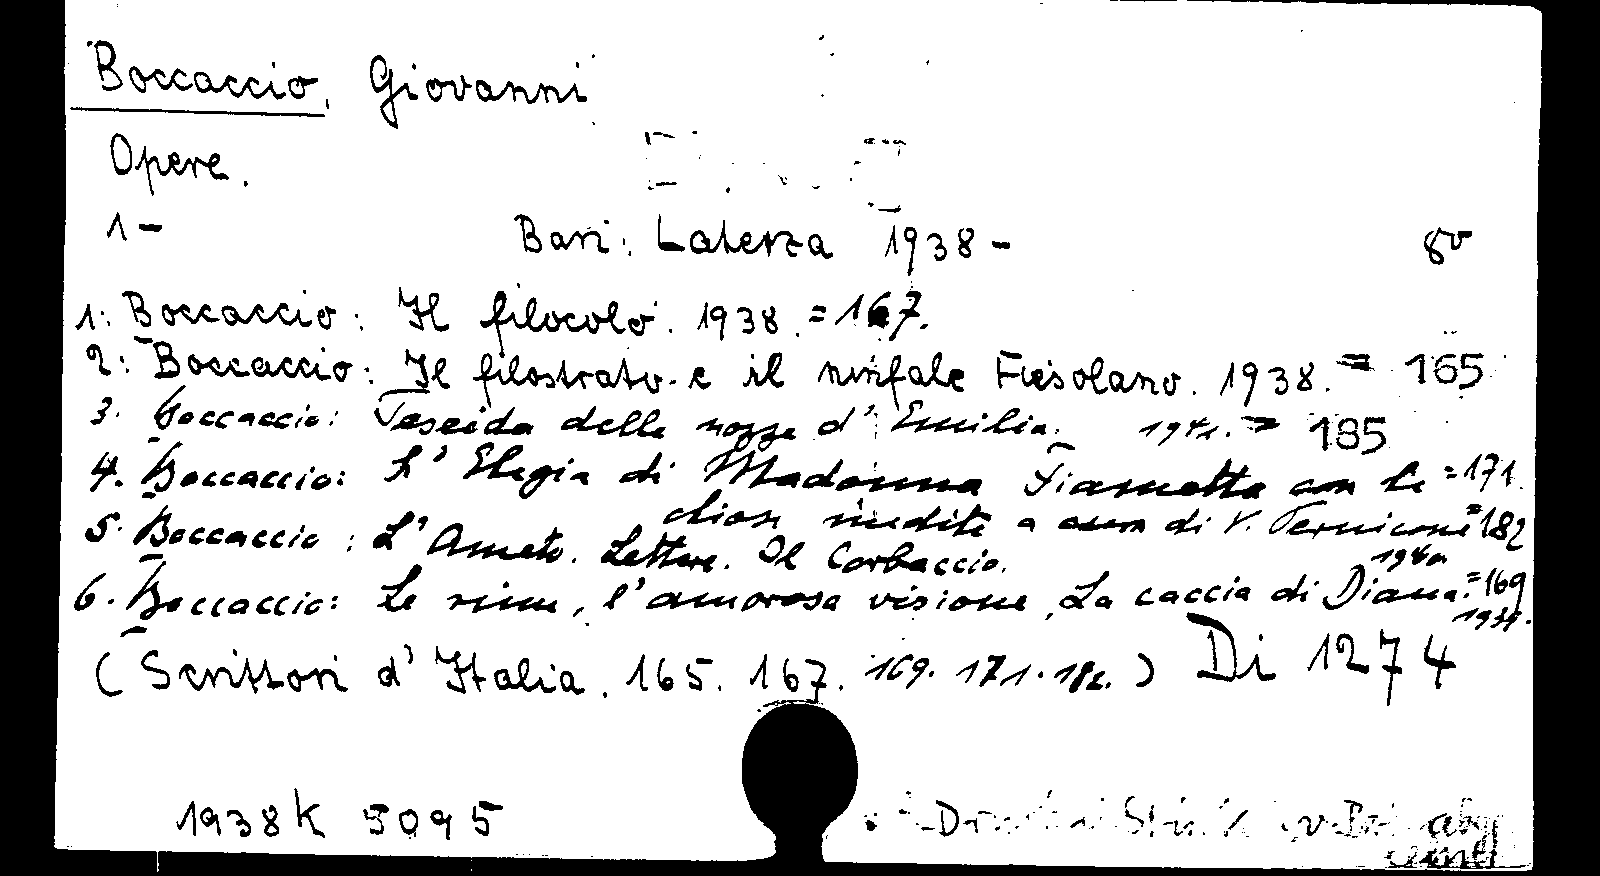 Boccaccio, Giovanni
Opere.
1- Bari: Laterza 1938- 8o
1: Boccaccio: Il filocolo. 1938. = 167.
2: Boccaccio: Il filostrato e il ninfale Fiesolano. 1938. = 165
3. Boccaccio: Teseida delle nozze d'Emilia. 1941. = 185
4. Boccaccio: L'Elegia di Madonna Fiametta con le = 171.
chiose inedite a cura di V. Pernicone
5. Boccaccio: L'Ameto. Lettere. Il Corbaccio. = 182
1940
6. Boccaccio: Le rime, l'amorosa visione, La caccia di Diana. = 169
1939.
(Scrittori d'Italia. 165. 167. 169. 171. 182.) Di 1274
1938 K 5095